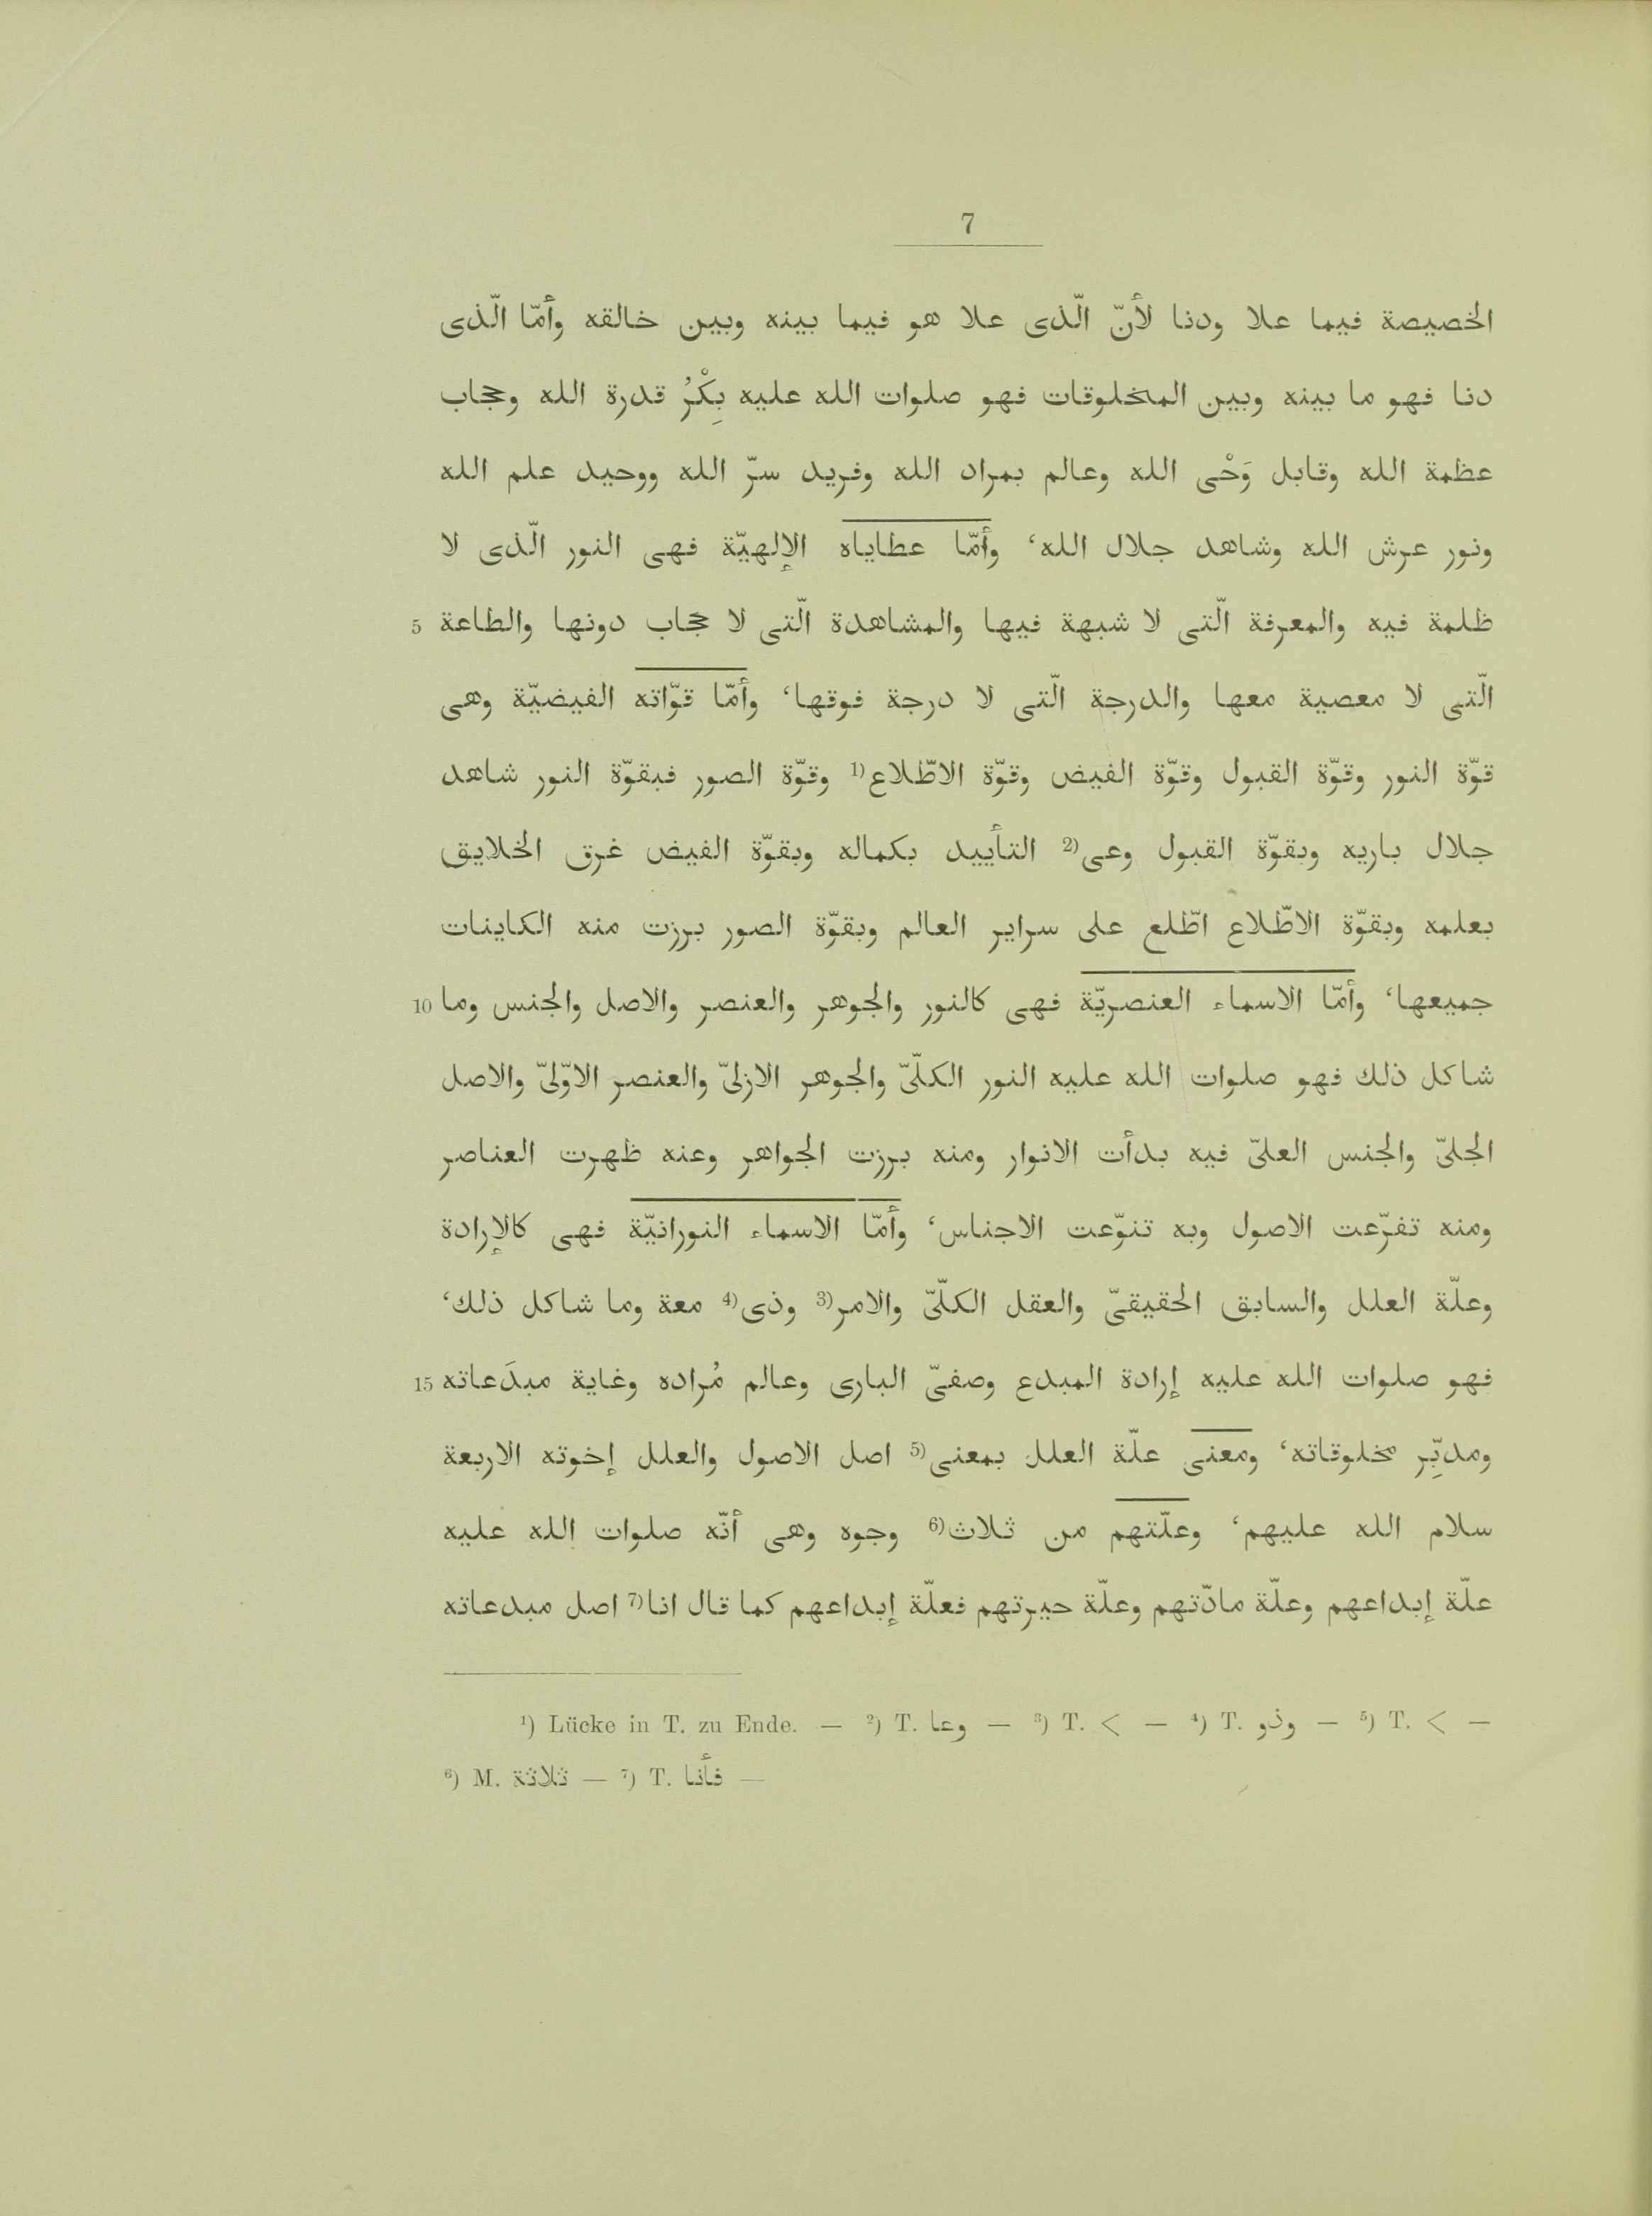 7
الخصيصة فيما علا ودنا لأنّ الّذى علا هو فيما بينه وبين خالقه وأمّا الّذى
دنا فهو ما بينه وبين المخلوقات فهو صلوات الله عليه بِكْرُ قدرة الله وحجاب
عظمة الله وقابل وَحْى الله وعالم بمراد الله وفريد سرّ الله ووحيد علم الله
ونور عرش الله وشاهد جلال الله، وأمّا عطاياه الإلهيّة فهى النور الّذى لا
ظلمة فيه والمعرفة الّتى لا شبهة فيها والمشاهدة الّتى لا حجاب دونها والطاعة 5
الّتى لا معصية معها والدرجة الّتى لا درجة فوقها، وأمّا قوّاته الفيضيّة وهى
قوّة النور وقوّة القبول وقوّة الفيض وقوّة الاطّلاع¹) وقوّة الصور فبقوّة النور شاهد
جلال باريه وبقوّة القبول وعى²) التأييد بكماله وبقوّة الفيض غرق الخلايق
بعلمه وبقوّة الاطّلاع اطّلع على سراير العالم وبقوّة الصور برزت منه الكاينات
جميعها، وأمّا الاسماء العنصريّة فهى كالنور والجوهر والعنصر والاصل والجنس وما 10
شاكل ذلك فهو صلوات الله عليه النور الكلّىّ والجوهر الازلىّ والعنصر الاوّلىّ والاصل
الجلىّ والجنس العلىّ فيه بدأت الانوار ومنه برزت الجواهر وعنه ظهرت العناصر
ومنه تفرّعت الاصول وبه تنوّعت الاجناس، وأمّا الاسماء النورانيّة فهى كالإرادة
وعلّة العلل والسابق الحقيقىّ والعقل الكلّىّ والامر³) وذى⁴) معة وما شاكل ذلك،
فهو صلوات الله عليه إرادة المبدع وصفىّ البارى وعالم مُراده وغاية مبدَعاته 15
ومدبِّر مخلوقاته، ومعنى علّة العلل بمعنى⁵) اصل الاصول والعلل إخوته الاربعة
سلام الله عليهم، وعلّتهم من ثلاث⁶) وجوه وهى أنّه صلوات الله عليه
علّة إبداعهم وعلّة مادّتهم وعلّة حيرتهم فعلّة إبداعهم كما قال انا⁷) اصل مبدعاته
¹) Lücke in T. zu Ende. — ²) T. وعا — ³) T. < — ⁴) T. وذو — ⁵) T. < —
⁶) M. ثلاثة — ⁷) T. فأنا —